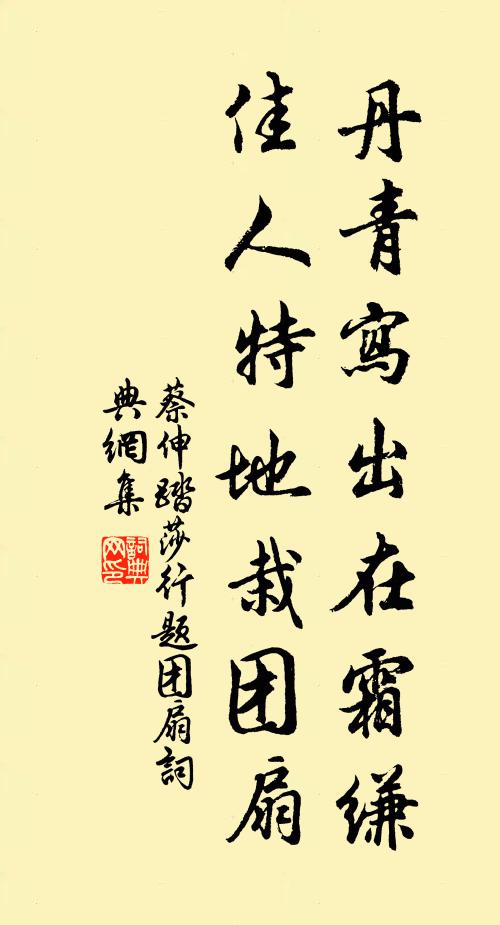 丹青寫出在霜縑
佳人特地栽团扇
蔡伸踏莎行题团扇詞
典網集
詞典网印